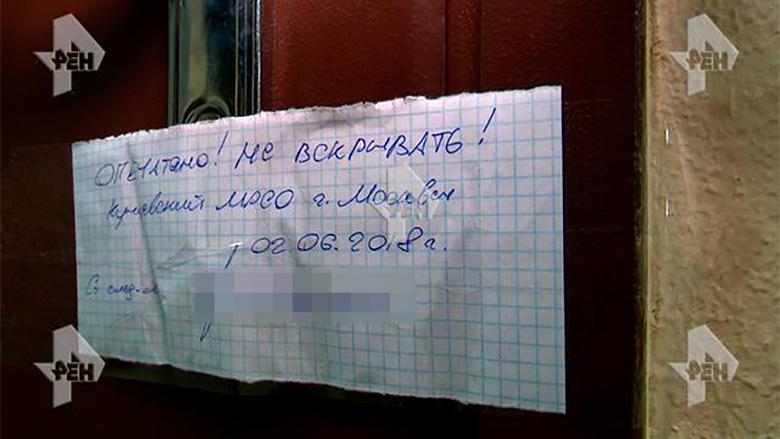 РЕН
РЕН
ОПЕЧАТАНО! НЕ ВСКРЫВАТЬ!
МРСО г. Москвы
02.06.2018г.
Ст след-ль
РЕН
РЕН